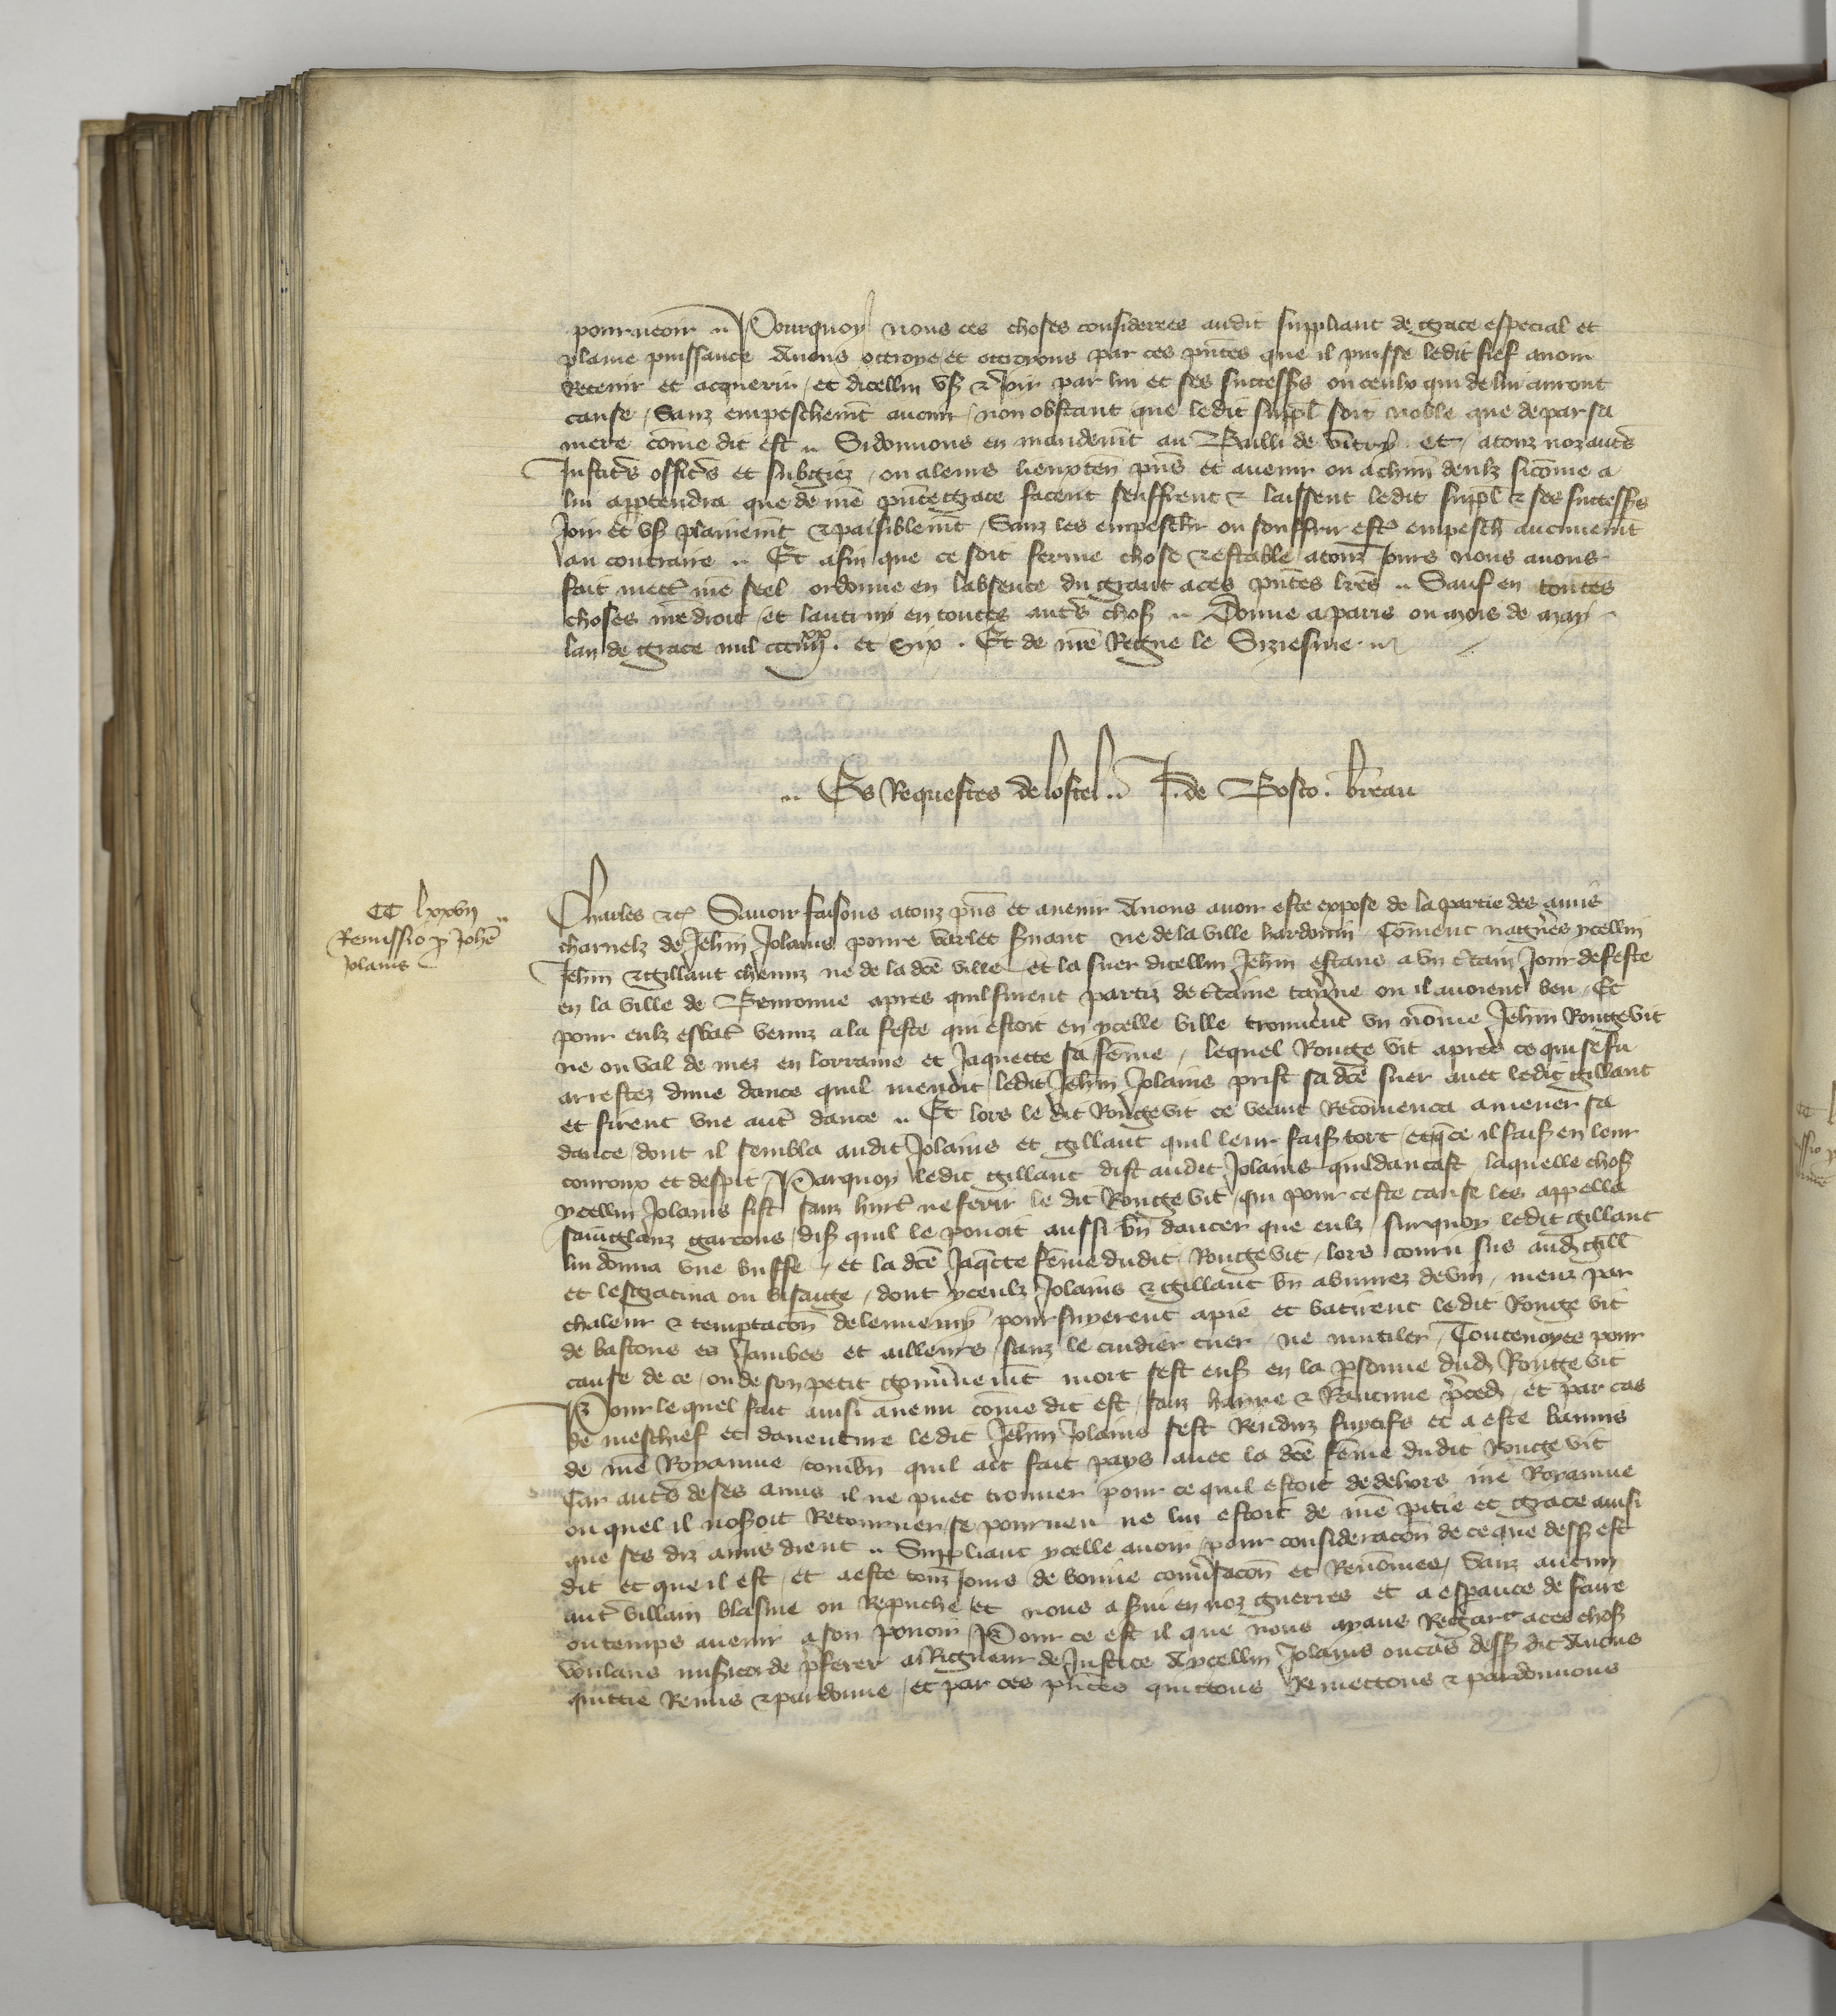 pourueoir .. Pourquoy nous ces choses considerees audit suppliant de grace especial et
plaine puissance Auons ottroye et ottroyons par ces pntes que il puisse ledit fief auoir
Retenir et acquerir / et dicellui vs & Joir par lui et ses successs ou ceulx qui de lui auront
cause / Sanz empeschemt aucun / non obstant que ledit suppl soit noble que de par sa
mere come dit est .. Si donnons en mandemt au Bailli de vitry et / a touz noz autrs
Justicrs officrs et subgiez / ou a leurs lieuxten pns et auenir ou a chun deulz sicome a
lui apptendra que de nre pnte grace facent seuffrent & laissent ledit suppl & ses successs
Joir et vs plainemt & paisiblemt / Sanz les empescher ou souffrir estr empesch aucunemt
au contraire .. Et afin que ce soit ferme chose & estable a touz Jours nous auons
fait mectr nre seel ordonne en labsence du grant a ces pntes lres .. Sauf en toutes
choses nre droit / et lautruy en toutes autrs chos .. Donne a paris ou mois de may
lan de grace mil ccc iiiixx . et six . Et de nre Regne le Siziesme ..
.. Es Requestes de lostel .. J. de Bosco . breau
CC lxxvij ..
Remissio p Johe
Jolanis
Charles &c Sauoir faisons a touz pns et auenir A nous auoir este expose de la partie des amis
charnelz de Jehin Jolanis poure varlet seruant ne de la ville hardouin Coment nagueres ycellui
Jehin & gillaut chemuz ne de la dce ville / et la suer dicellui Jehin estans a vn ctain Jour de feste
en la ville de Bemonne apres quil furent partiz de ctaine tauerne ou il auoient beu / Et
pour eulz esbatr venuz a la feste qui estoit en ycelle ville trouuerent vn nome Jehin Rougevit
ne ou val de mez en lorraine et Jaquette sa feme / lequel Rouge vit apres ce qui se fu
arrestez dune dance quil menoit / ledit Jehin Jolanis prist sa dce suer auec ledit gillaut
et firent vne autr dance .. Et lors le dit Rougevit ce veant Recomenca a mener sa
dance / dont il sembla audit Jolanis et gillaut quil leur fais tort / et que ce il fais en leur
couroux et despit / Parquoy ledit gillaut dist audit Jolanis quil dancast / laquelle chos
ycellui Jolanis fist sanz hurtr ne ferir le dit Rouge vit / qui pour ceste cause les appella
sainglanz garcons / dis quil le pouoit aussi bn dancer que eulz / surquoy ledit gillaut
lui donna vne buffe / et la dce Jaqette feme dudit Rouge vit / lors couru sus aud gill
et lesgratina ou visaige / dont yceulz Jolanis & gillaut bn abuurez de vin / meuz par
chaleur & temptacon de lennemy poursuyerent a pie et batirent ledit Rouge vit
de bastons es Jambes et ailleurs / sanz le cuidier tuer / ne mutiler / Toutenoyes pour
cause de ce / ou de son petit gouuernemt mort sest ens en la psonne dud Rouge vit
Pour le quel fait ainsi auenu come dit est / sanz hayne & Rancune preced / et par cas
de meschief et dauenture ledit Jehin Jolanis sest Renduz fuytifs et a este bannis
de nre Royaume combn quil ait fait pays auec la dce feme dudit Rouge vit
Car autrs de ses amis il ne puet trouuer / pour ce quil estoit de dehors nre Royaume
ou quel il nosoit Retourner / se pourueu ne lui estoit de nre pitie et grace ainsi
que ses diz amis dient .. Suppliant ycelle auoir / pour consideracon de ce que dess est
dit et que il est / et a este touz Jours de bonne conuersacon et Renomee / Sanz aucun
autr villain blasme ou Repuche / et nous a sui en noz guerres et a espance de faire
ou temps auenir a son pouoir / Pour ce est il que nous ayans Regart a ces chos
voulans misicorde preferer a Rigueur de Justice A ycellui Jolanis ou cas dess dit Auons
quittie Remis & pardonne / et par ces pntes quittons Remettons & pardonnons